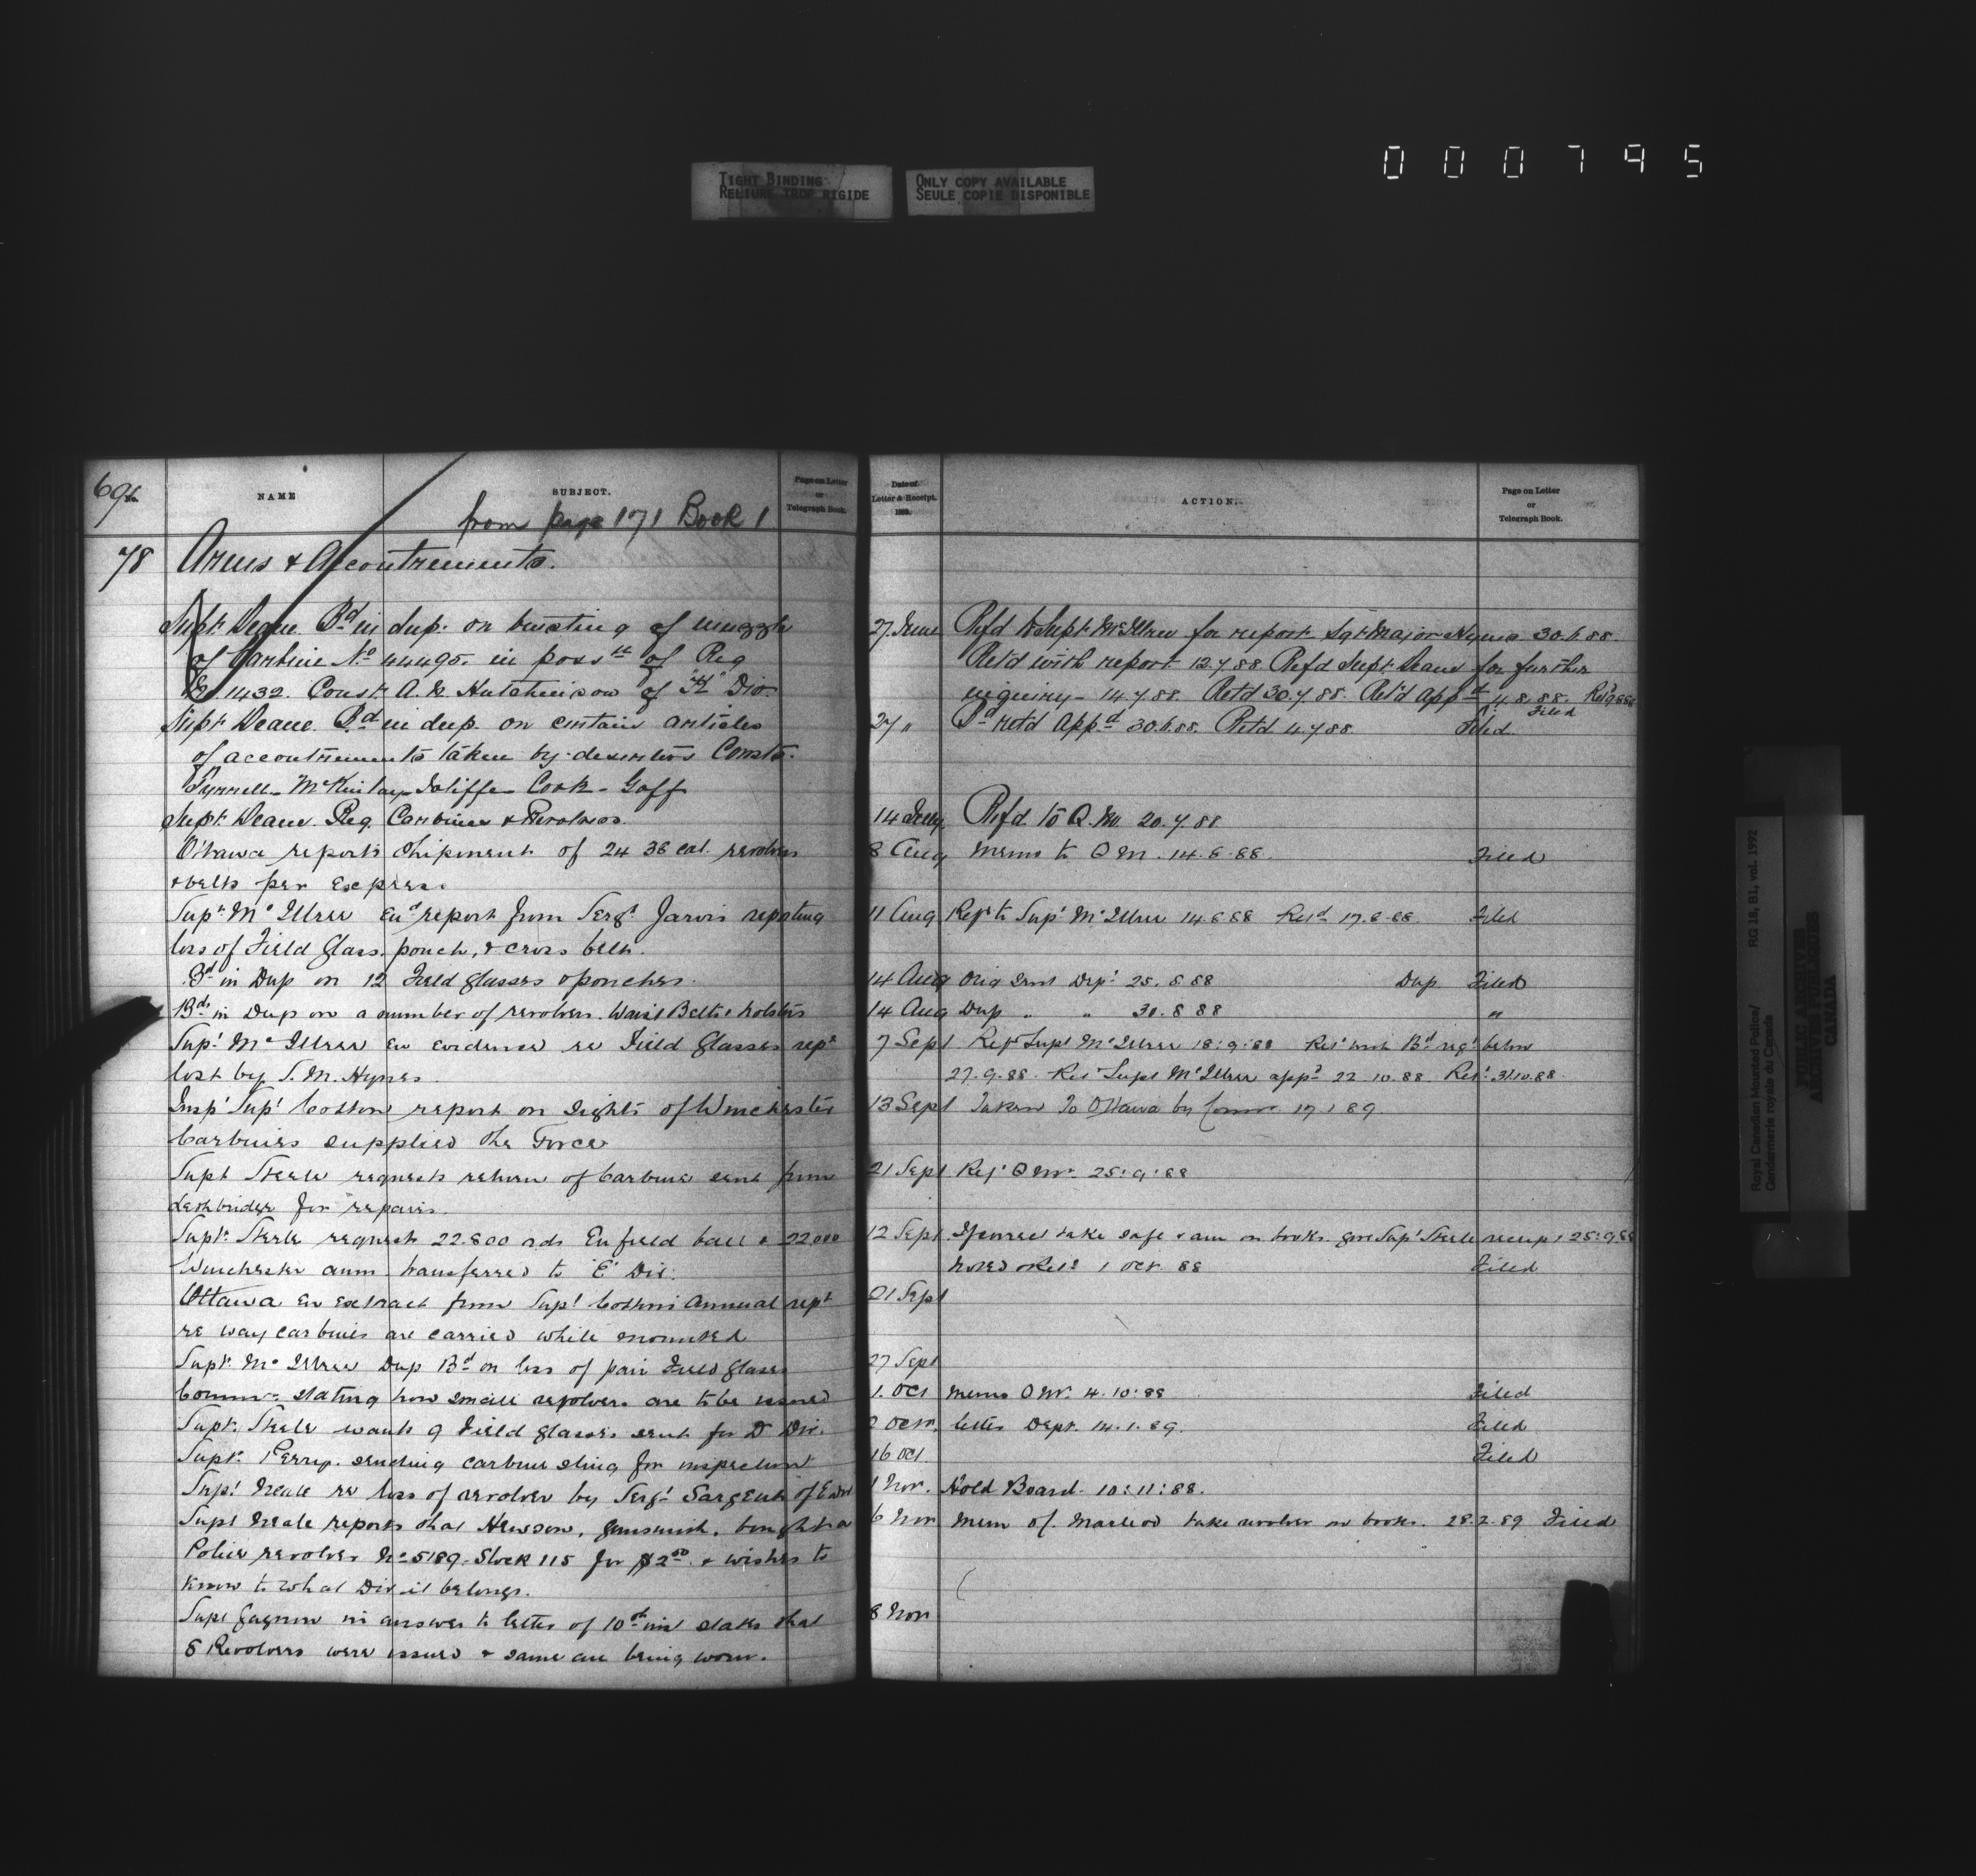 000795
TIGHT BINDING
RELIURE TROP RIGIDE
ONLY COPY AVAILABLE
SEULE COPIE DISPONIBLE
No. NAME SUBJECT. Page on Letter or Telegraph Book.
from page 171 Book 1
78 Arms & Accoutrements.
Supt. Deane. Bd in dup. on bursting of muzzle
of Carbine No 44495. in poss of Reg
No 1432. Const. A. N. Hutchinson of "K" Div.
Supt Deane. Bd in dup. on certain articles
of accoutrements taken by deserters Consts.
Tyrrell - McKinlay - Cook - Goff
Supt. Deane. Req. Carbines & Revolvers.
Ottawa reports shipment of 24 38 cal. revolvers
& belts per Express.
Supt. McIllree report from Sergt. Jarvis reporting
loss of Field Glass, pouch, & cross belt.
Bd in Dup on 12 Field glasses & pouches.
Bds in Dup on a number of revolvers. Waist Belts & holsters
Supt. McIllree en evidence re Field Glasses rept
lost by S. M. Hynes.
Insp. Supt. Cotton report on sights of Winchester
Carbines supplied the Force
Supt Steele requests return of Carbine sent from
Lethbridge for repairs.
Supt. Steele requests 22.800 rds Enfield ball & 22,000
Winchester amm transferred to "E" Div.
Ottawa en extract from Supt Cotton's Annual rept
re way carbines are carried while mounted
Supt. McIllree Dup Bd on loss of pair Field glasses
Commr. stating how small revolvers are to be issued
Supt. Steele wants 9 Field glasses sent for D Div.
Supt. Perry. sending carbine sling for inspection
Supt Neale re loss of revolver by Sergt Sargent of E Div
Supt Neale reports that Hewson, gunsmith, bought a
Police revolver No 5189. Stock 115 for $2.00 & wishes to
know to what Div it belongs.
Supt Gagnon in answer to letter of 10th inst states that
8 Revolvers were issued & same are being worn.
Date of Letter & Receipt. 188 . ACTION. Page on Letter or Telegraph Book.
27 June Refd to Supt McIllree for report Sgt Major Hynes 30.6.88.
Retd with report 12.7.88 Refd Supt Deane for further
inquiry - 14.7.88. Retd 30.7.88. Retd appd 4.8.88.
Filed
27 " Bd retd appd 30.6.88. Retd 4.7.88 Filed
14 July Refd to Q.M. 20.7.88
8 Aug Memo to Q M. 14.8.88. Filed
11 Aug Ref to Supt McIllree 14.8.88 Retd 17.8.88. Filed
14 Aug Orig sent Dept 25.8.88 Dup Filed
14 Aug Dup " " 30.8.88 "
7 Sept Ref Supt McIllree 18:9:88 Ret with Bd below
27.9.88. Ret Supt McIllree appd 22.10.88. Ret 31.10.88.
13 Sept Taken to Ottawa by Commr 17.1.89
21 Sept Ref Q Mr 25:9:88
12 Sept take safe & am on books. give Supt Steele receipt 25:9.88
Noted & Retd 1 Oct. 88 Filed
21 Sept
27 Sept
1. Oct Memo Q Mr. 4.10:88 Filed
2 Octr. letter Dept. 14.1.89. Filed
16 Oct. Filed
1 Nov. Hold Board. 10:11:88.
6 Nov Mem of. Macleod take revolver on books. 28.2.89 Filed
8 Nov
Royal Canadian Mounted Police/
Gendarmerie royale du Canada
RG 18, B1, vol. 1992
PUBLIC ARCHIVES
ARCHIVES PUBLIQUES
CANADA